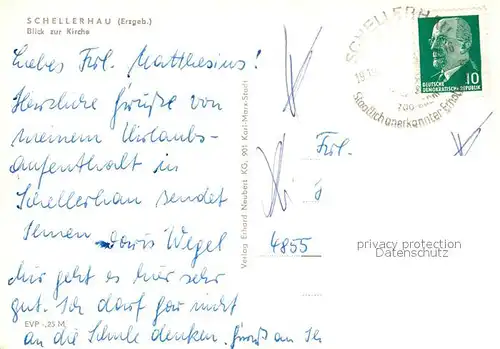 SCHELLERHAU (Erzgeb.)
Blick zur Kirche
Liebes Frl. Matthesius!
Herzliche Grüße von
meinem Urlaubs-
aufenthalt in
Schellerhau sendet
Ihnen Doris Wegel
Mir geht es hier sehr
gut. Ich darf gar nicht
an die Schule denken. Gruß an
EVP -,25 M
Verlag Erhard Neubert KG, 901 Karl-Marx-Stadt
SCHELLERHAU
Staatlich anerkannter
10
DEUTSCHE
DEMOKRATISCHE REPUBLIK
Frl.
4855
privacy protection
Datenschutz